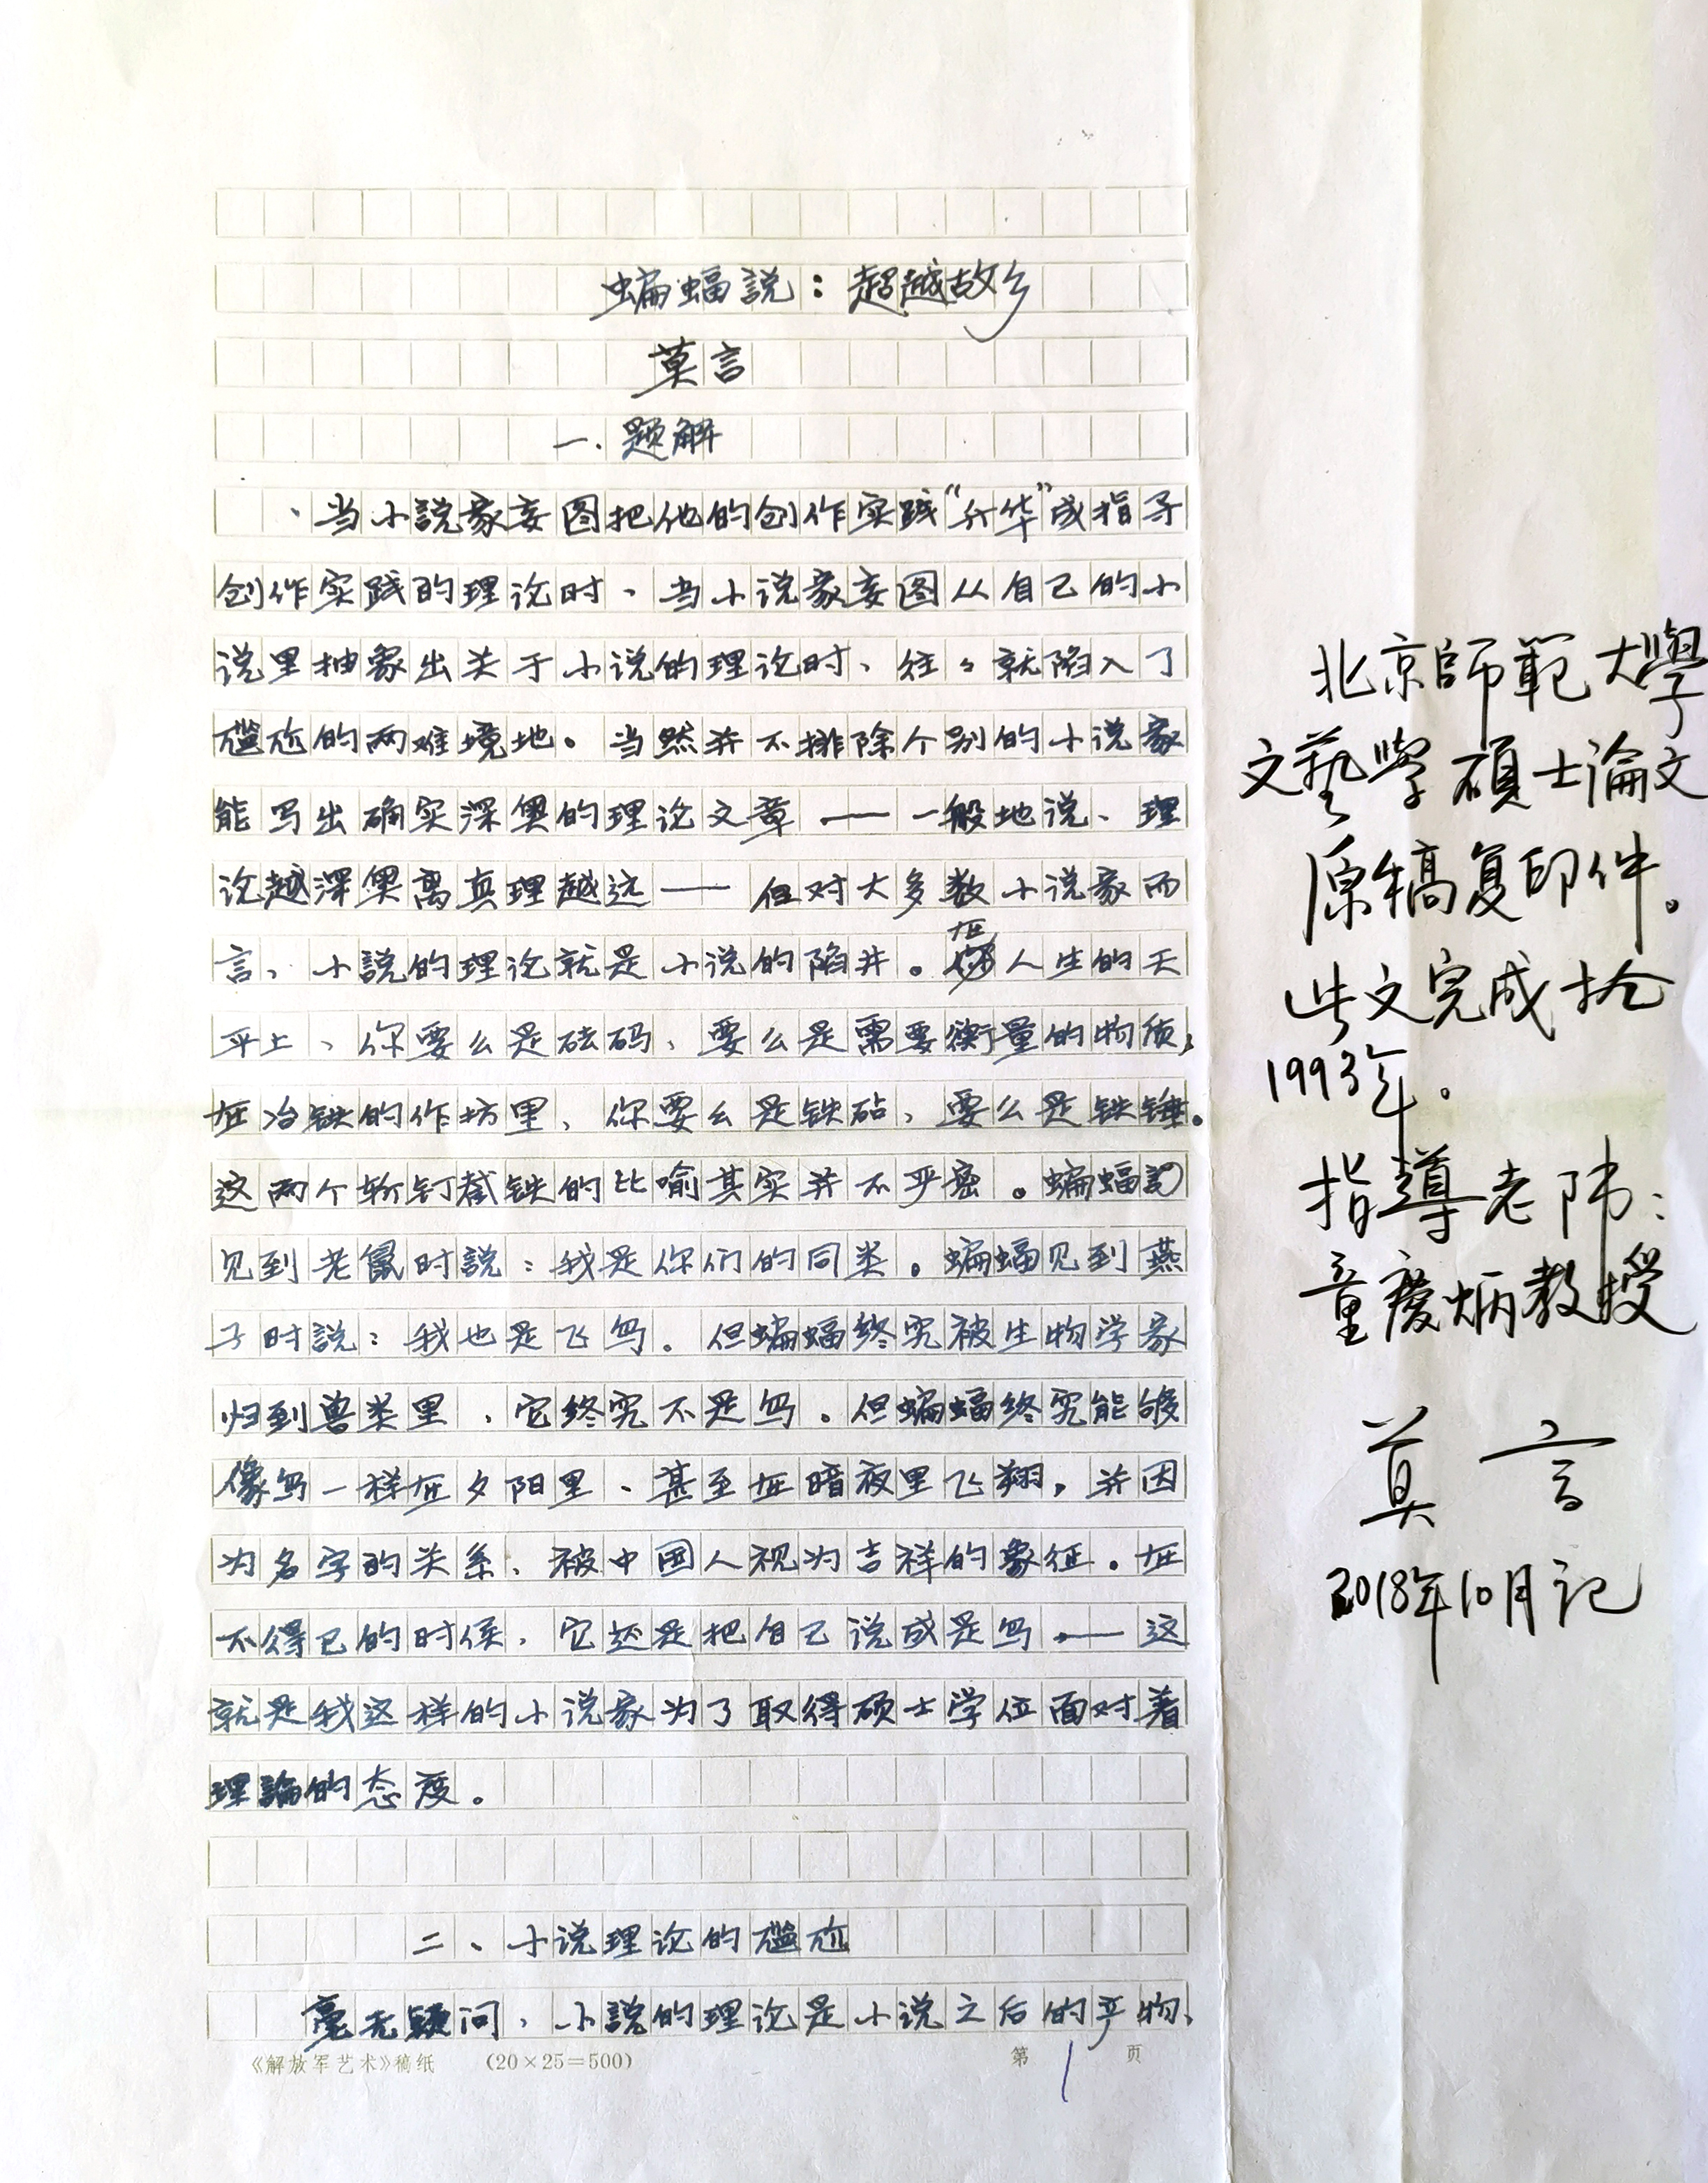 蝙蝠説：超越故乡
莫言
一.题解
、当小説家妄图把他的创作实践“升华”成指导
创作实践的理论时、当小说家妄图从自己的小
说里抽象出关于小说的理论时、往々就陷入了
尴尬的两难境地。当然并不排除个别的小说家
能写出确实深奥的理论文章——一般地说、理
论越深奥离真理越远——但对大多数小说家而
言、小説的理论就是小说的陷井。在人生的天
平上、你要么是砝码、要么是需要衡量的物质；
在冶铁的作坊里、你要么是铁砧、要么是铁锤。
这两个斩钉截铁的比喻其实并不严密。蝙蝠
见到老鼠时説：我是你们的同类。蝙蝠见到燕
子时説：我也是飞鸟。但蝙蝠终究被生物学家
归到兽类里、它终究不是鸟。但蝙蝠终究能够
像鸟一样在夕阳里、甚至在暗夜里飞翔，并因
为名字的关系、被中国人视为吉祥的象征。在
不得已的时侯、它还是把自己说成是鸟——这
就是我这样的小说家为了取得硕士学位面对着
理論的态度。
二、小说理论的尴尬
毫无疑问、小説的理论是小说之后的产物、
《解放军艺术》稿纸 (20×25=500) 第1页
北京師範大學
文藝學碩士論文
原稿复印件。
此文完成於
1993年.
指導老师：
童慶炳教授
莫言
2018年10月记